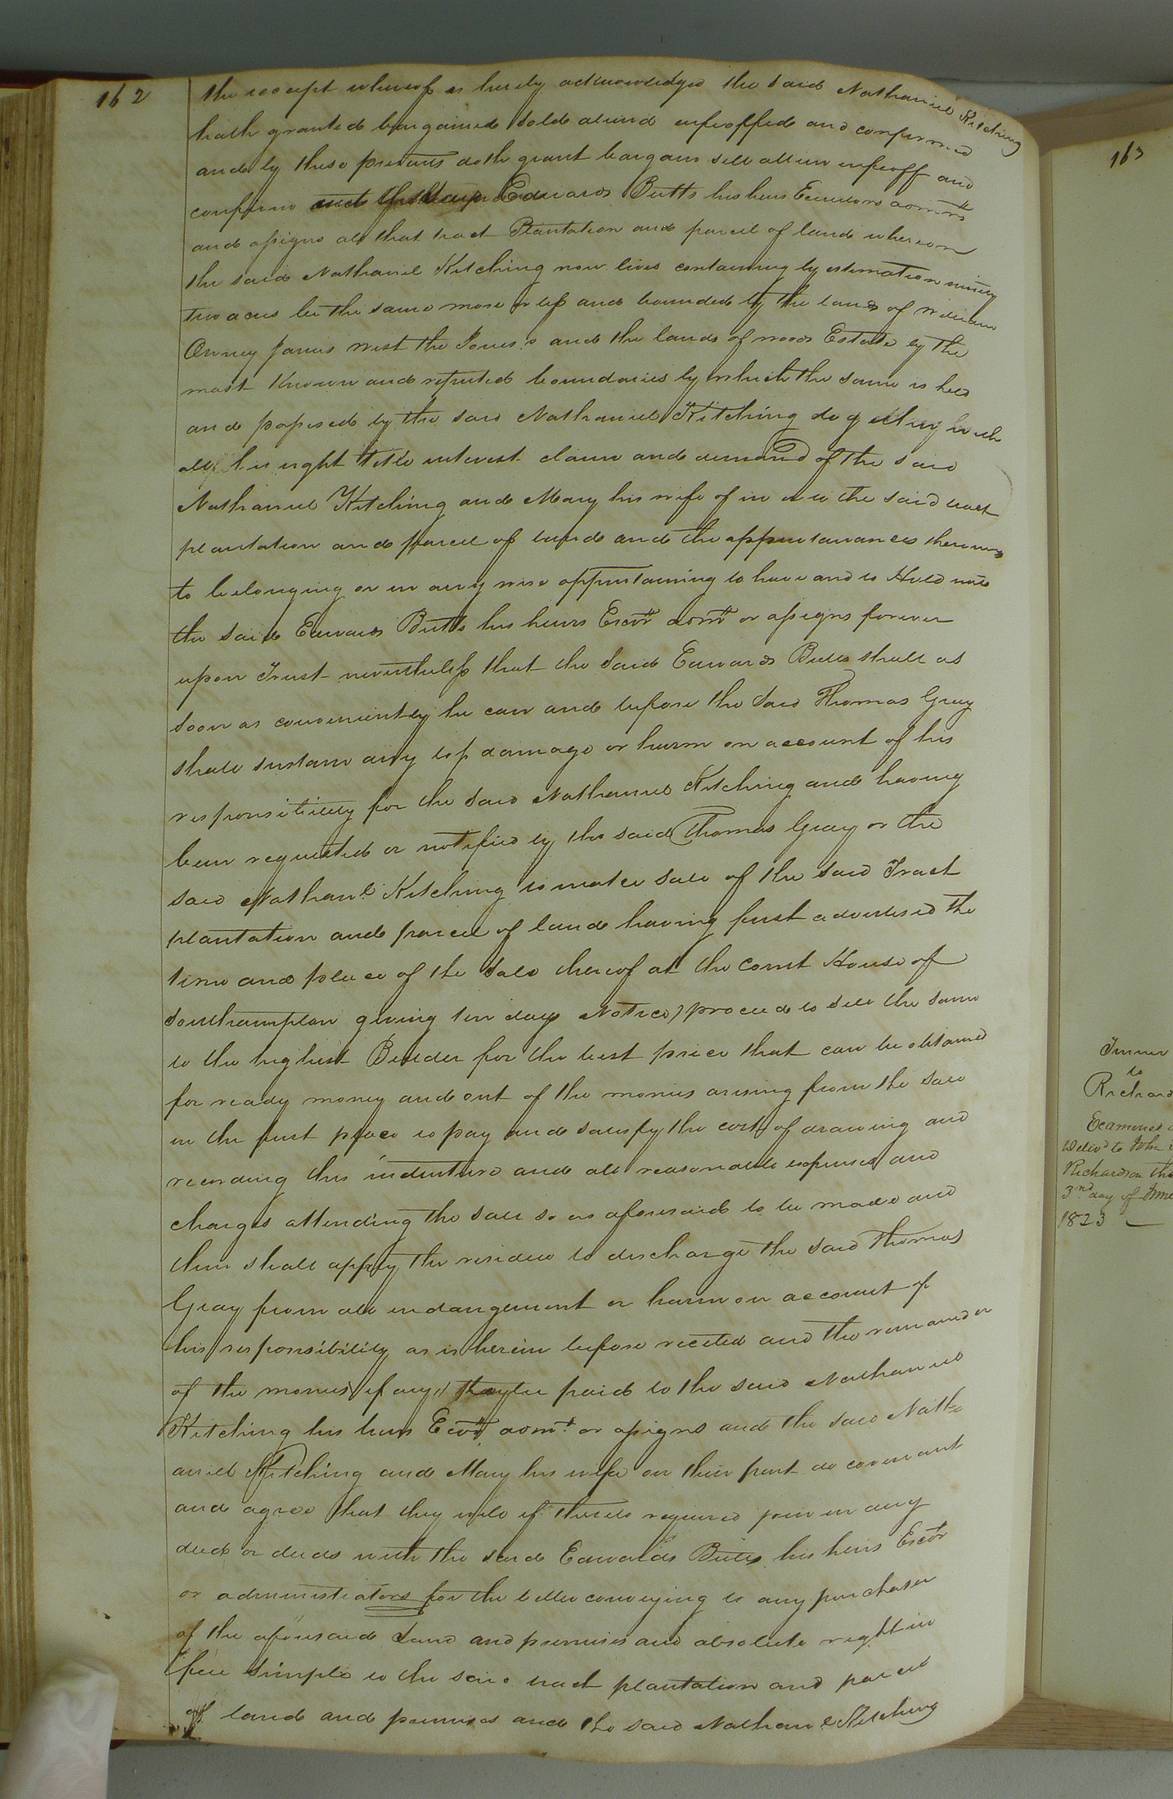 162
the receipt whereof is hereby acknowledged the said Nathaniel Kitching
hath granted bargained sold aliend enfeoffed and confirmed
and by these presents doth grant bargain sell alien enfeoff and
confirm Edwards Butts his heirs Executors admrs
and assigns all that tract Plantation and parcel of land whereon
the said Nathaniel Kitching now lives containing by estimation ninety
two acres be the same more or less and bounded by the lands of William
James West the Jones's and the lands of woods Estate by the
most known and reputed boundaries by which the same is held
and possessed by the said Nathaniel Kitching
all his right title interest claim and demand of the said
Nathaniel Kitching and Mary his wife of in or to the said tract
plantation and parcel of land and the appurtanances thereun
to belonging or in any wise appurtaining to have and to Hold unto
the said Edwards Butts his heirs Exors admrs or assigns forever
upon Trust nevertheless that the said Edwards Butts shall as
soon as conveniently he can and before the said Thomas Gray
shall sustain any loss damage or harm on account of his
responsibility for the said Nathaniel Kitching and having
been requested or notified by the said Thomas Gray or the
said Nathanl Kitching to make sale of the said Tract
plantation and parcel of land having first advertised the
time and place of the sale thereof at the Court House of
Southampton giving ten days Notice) proceed to sell the same
to the highest Bidder for the best price that can be obtained
for ready money and out of the monies arising from the sale
in the first place to pay and satisfy the costs of drawing and
recording this indenture and all reasonable expenses and
charges attending the sale so as aforesaid to be made and
then shall apply the residue to discharge the said Thomas
Gray from all endangement or harm on account of
his responsibility as is herein before recited and the remainder
of the monies if any be paid to the said Nathaniel
Kitching his heirs Exors admrs or assigns and the said Nath
aniel Kitching and Mary his wife on their part do covenant
and agree that they will if thereto required join in any
deed or deeds with the said Edwards Butts his heirs Exors
or administrators for the better conveying to any purchaser
of the aforesaid Land and premises and absolute right in
fee simple to the said tract plantation and parcel
of land and premises and the said Nathanl Kitching
163
Turner
to
Richard
Examined
Delivd to John
Richardson this
3rd day of June
1823